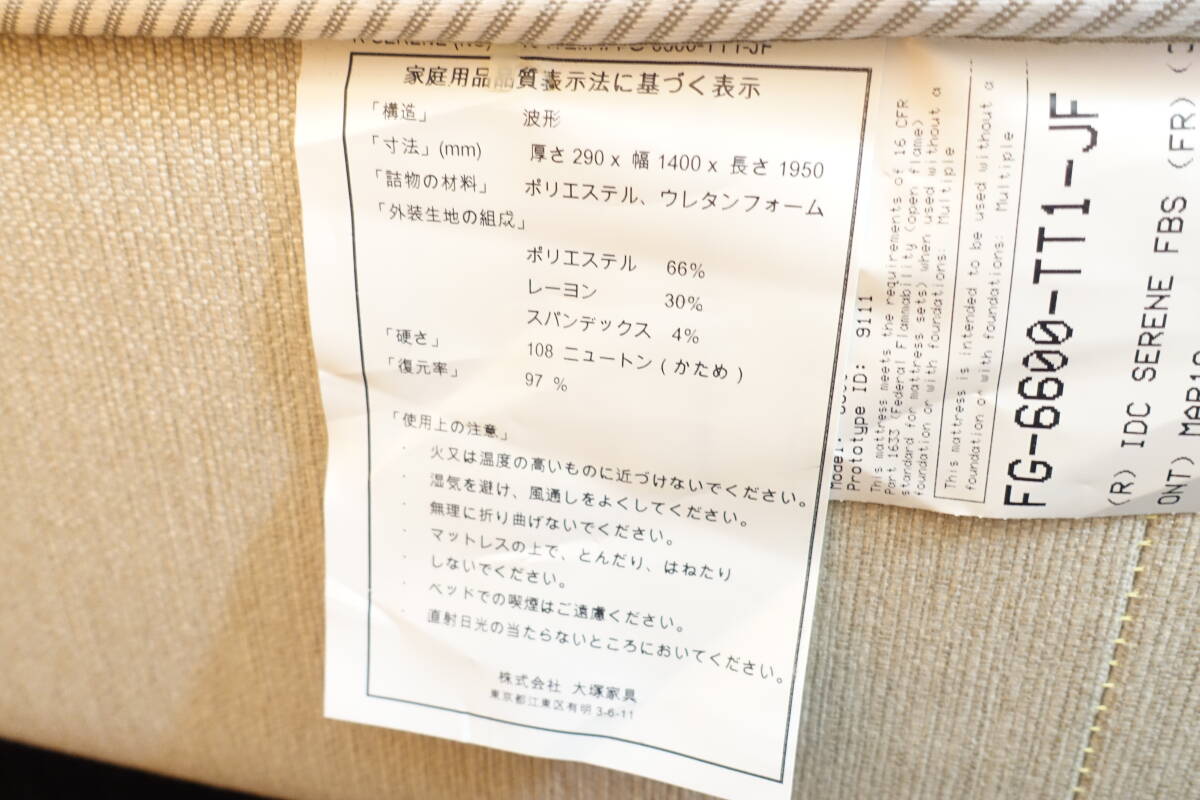 家庭用品品質表示法に基づく表示
「構造」 波形
「寸法」(mm) 厚さ 290 x 幅 1400 x 長さ 1950
「詰物の材料」 ポリエステル、ウレタンフォーム
「外装生地の組成」
ポリエステル 66%
レーヨン 30%
スパンデックス 4%
「硬さ」 108 ニュートン ( かため )
「復元率」 97 %
「使用上の注意」
· 火又は温度の高いものに近づけないでください。
· 湿気を避け、風通しをよくしてください。
· 無理に折り曲げないでください。
· マットレスの上で、とんだり、はねたり
しないでください。
· ベッドでの喫煙はご遠慮ください。
· 直射日光の当たらないところにおいてください。
株式会社 大塚家具
東京都江東区有明 3-6-11
Model:
Prototype ID: 9111
This mattress meets the requirements of 16 CFR
Part 1633 (Federal Flammability (open flame)
standard for mattress sets) when used without a
foundation or with foundations: Multiple
This mattress is intended to be used without a
foundation or with foundations: Multiple
FG-6600-TT1-JF
(R) IDC SERENE FBS (FR) (
ONT) MAR10